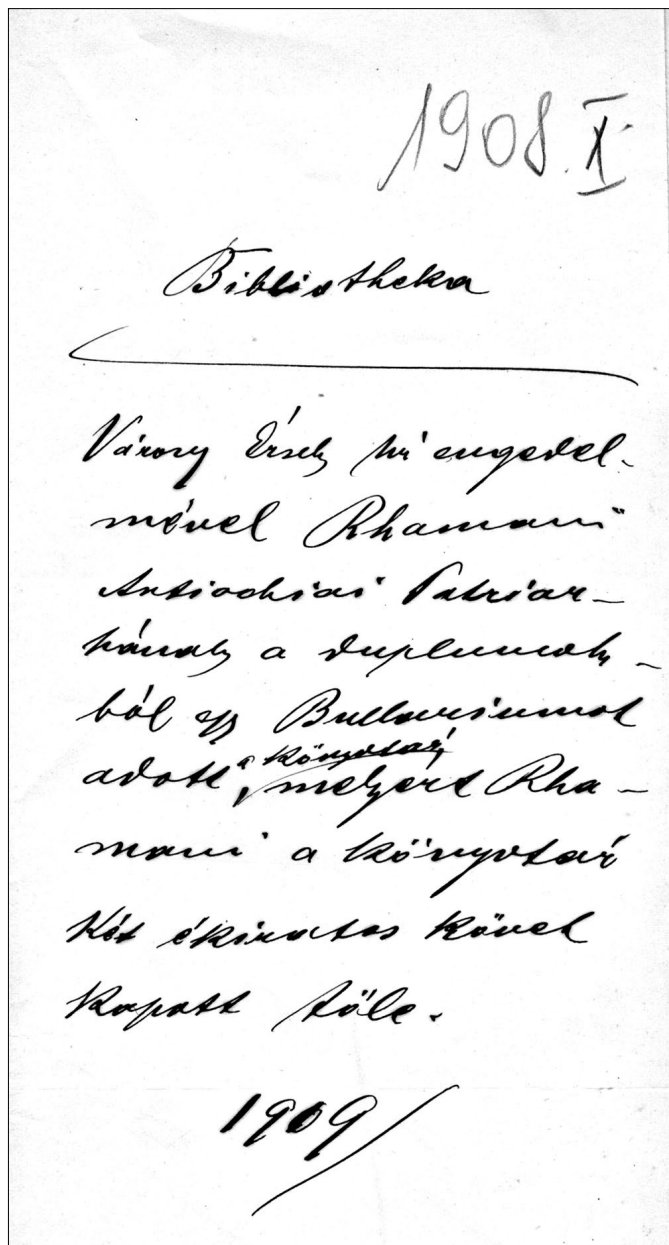 1908. X.
Bibliotheka
Várossy Érsek úr engedel-
mével Rhamani
Antiochiai Patriar-
hának a duplumok-
ból egy Bullariumot
adott a könyvtár, melyért Rha-
mani a könyvtár
Két ékiratos követ
Kapott tőle.
1909